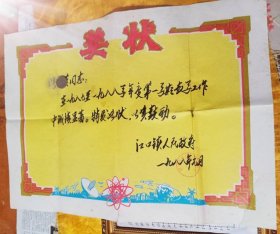 奖状
同志:
在一九八七至一九八八学年度第一学期教学工作
中成绩显著。特发此状,以资鼓励。
江口镇人民政府
一九八八年元月